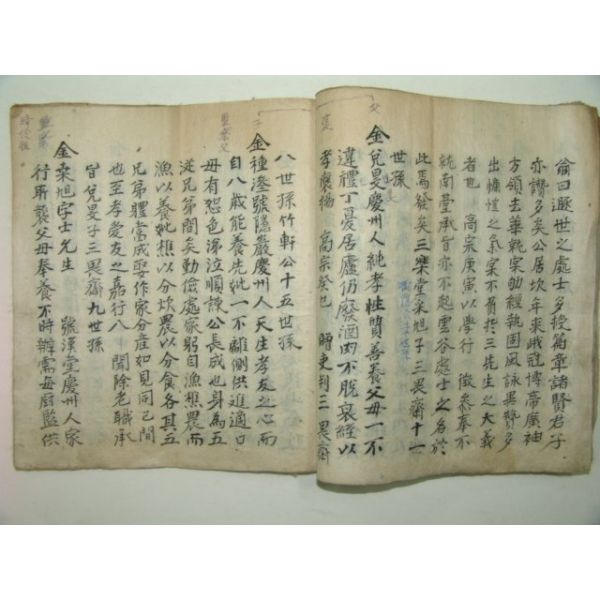 僉曰遯世之處士多授篇章諸賢君子
亦讚多矣公居坎年來峨冠博帶廣袖
方領主華執宗勳經執圍風詠畏贊多
出慷慨之氣案不負於三先生之大義
者也 高宗庚寅以學行 徵參奉不
就南臺承旨亦不起雲谷處士之名於
此焉翁矣三樂堂采旭子三畏齋十一
世孫
金兌旻慶州人純孝性質善養父母一不
違禮丁憂居廬仍廢酒肉不脫哀絰以
孝褒揚 高宗癸巳 贈吏判三畏齋
八世孫竹軒公十五世孫
金種瀅號隱巖慶州人天生孝友之心而
自八歲能養先妣一不離側供進適口
母有怒色涕泣順諫公長成也身爲五
從兄弟間矣勤儉處家躬自漁樵農而
漁以養妣樵以分炊農以分食各其五
兄弟體當成娶作家分産如見同己間
也至孝愛友之嘉行八 聞除老職承
旨兌旻子三畏齋九世孫
金采旭字士先生 號漢堂慶州人家
行所襲父母奉養不時辦需每廚監供